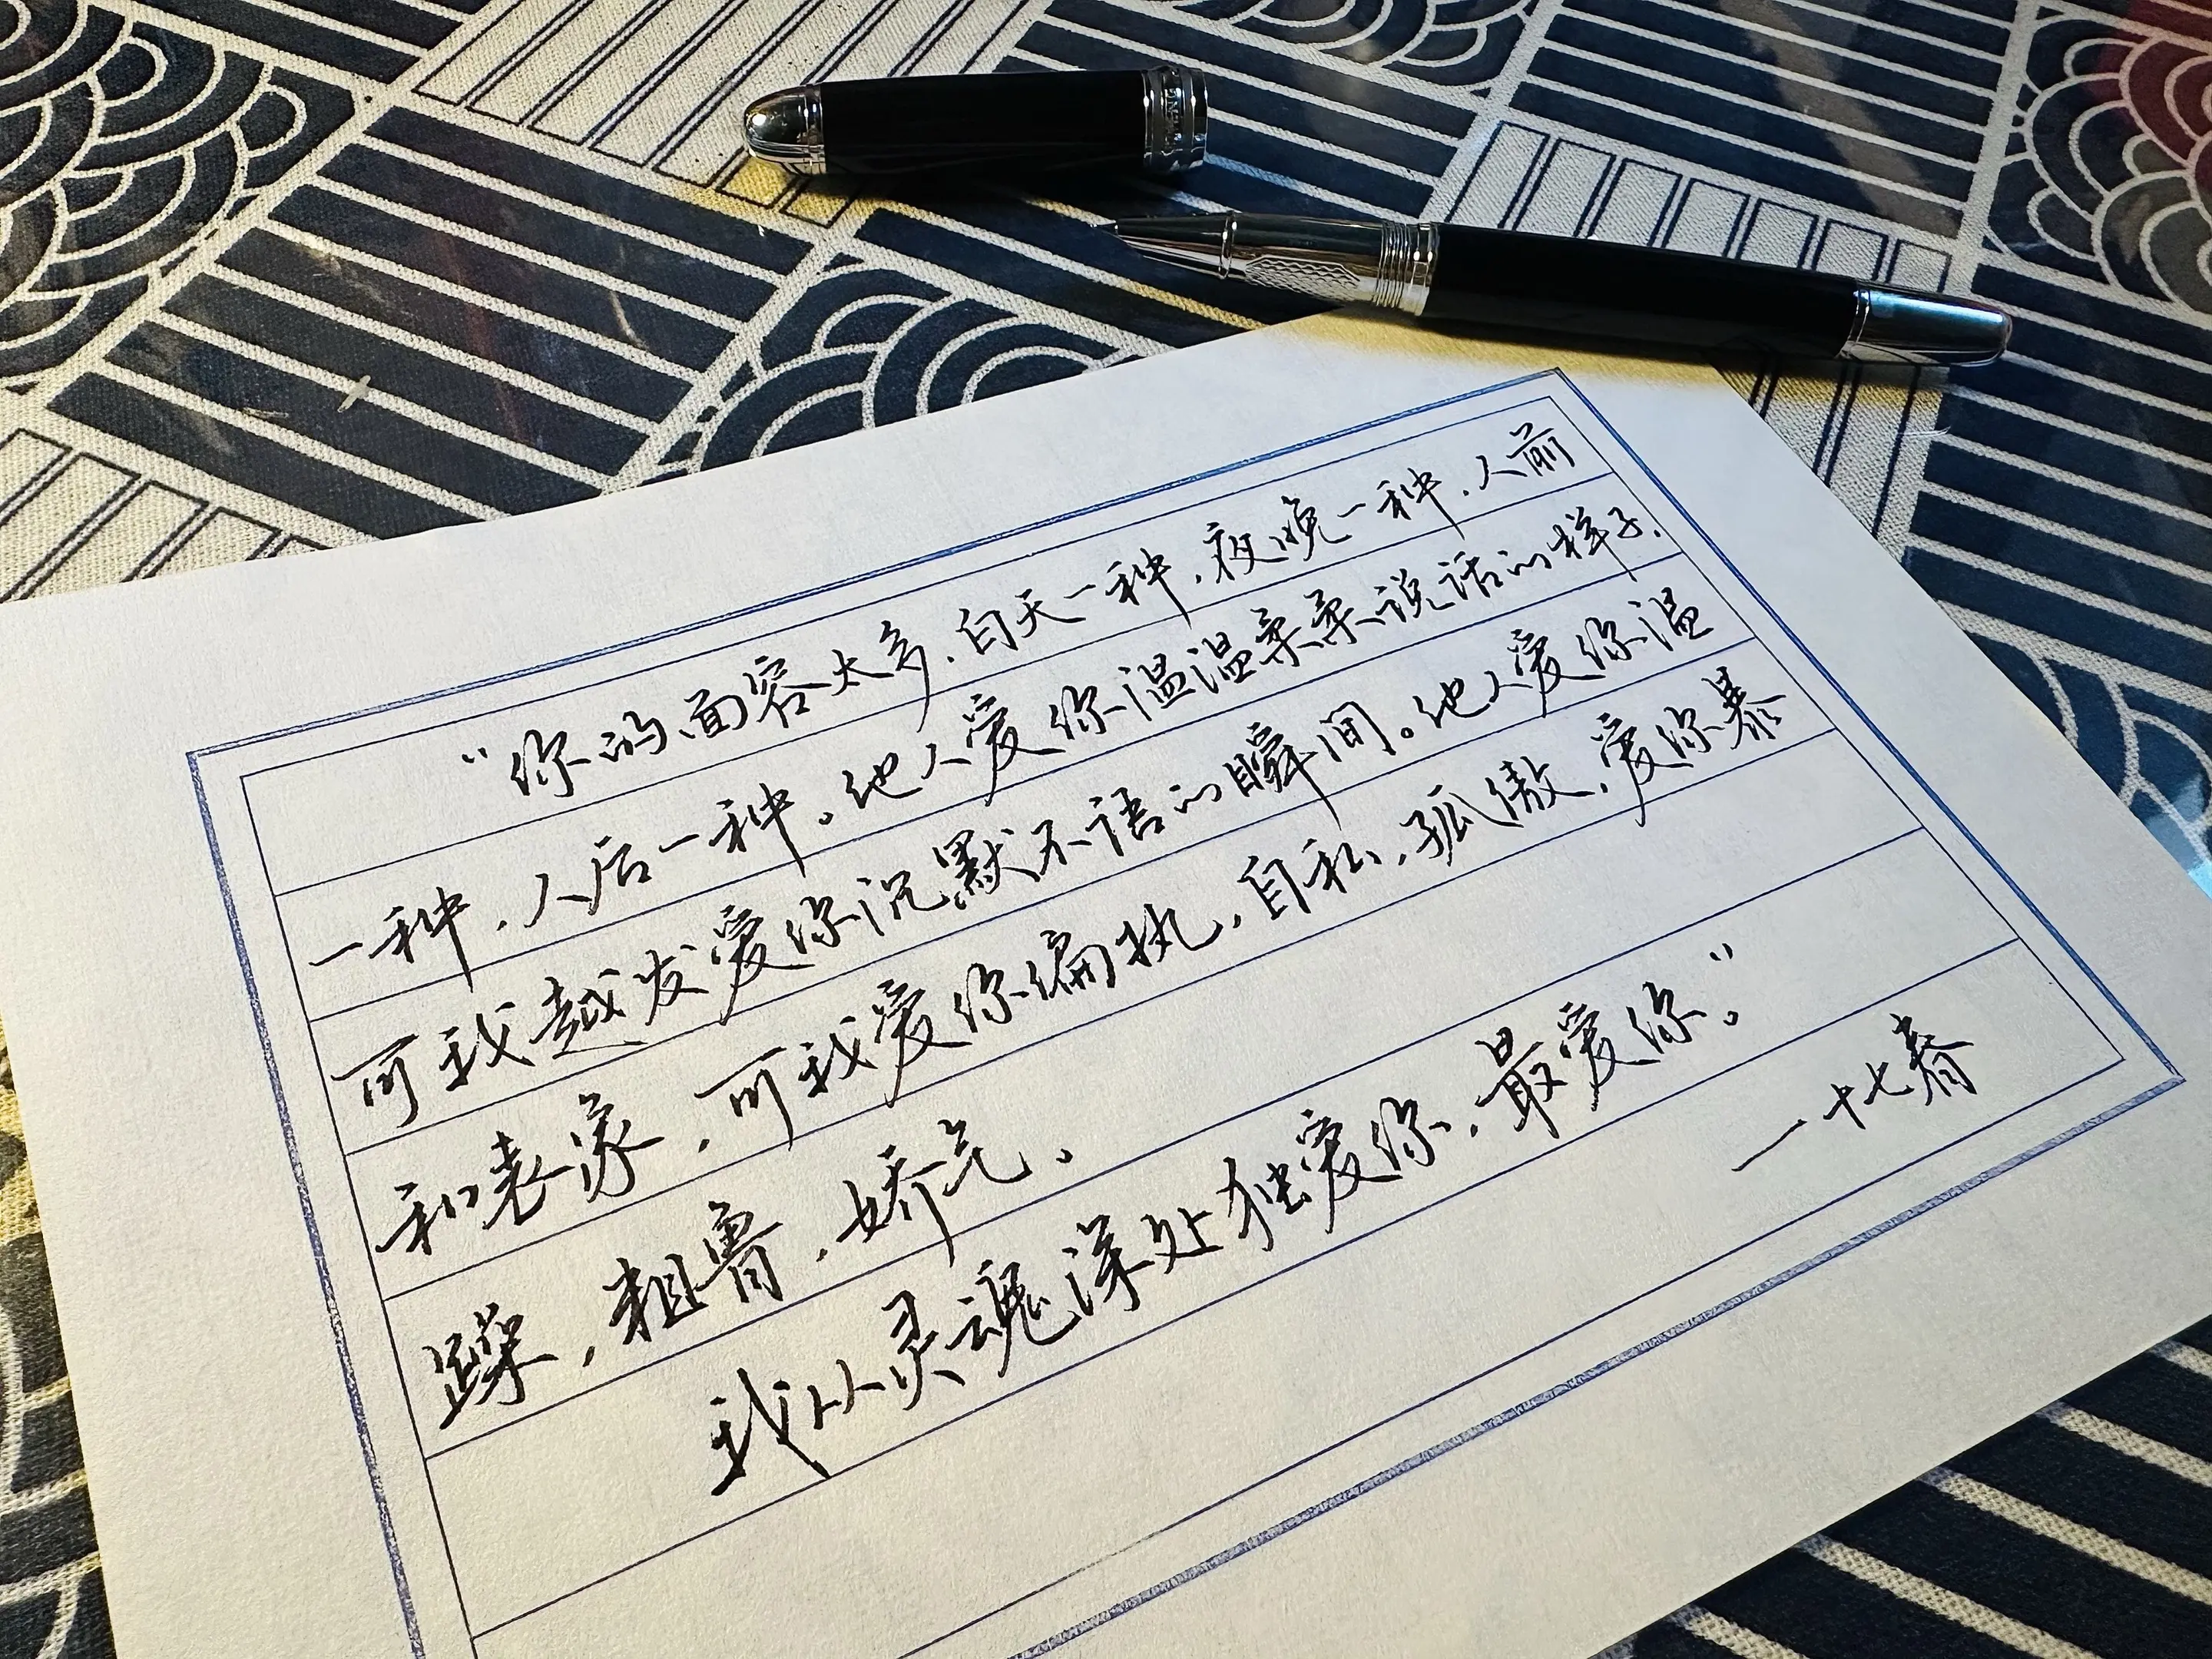 “你的面容太多，白天一种，夜晚一种，人前
一种，人后一种。他人爱你温温柔柔说话的样子，
可我越发爱你沉默不语的瞬间。他人爱你温
和表象，可我爱你偏执，自私，孤傲，爱你暴
躁，粗鲁，娇气。
我从灵魂深处独爱你，最爱你。”
一十七春